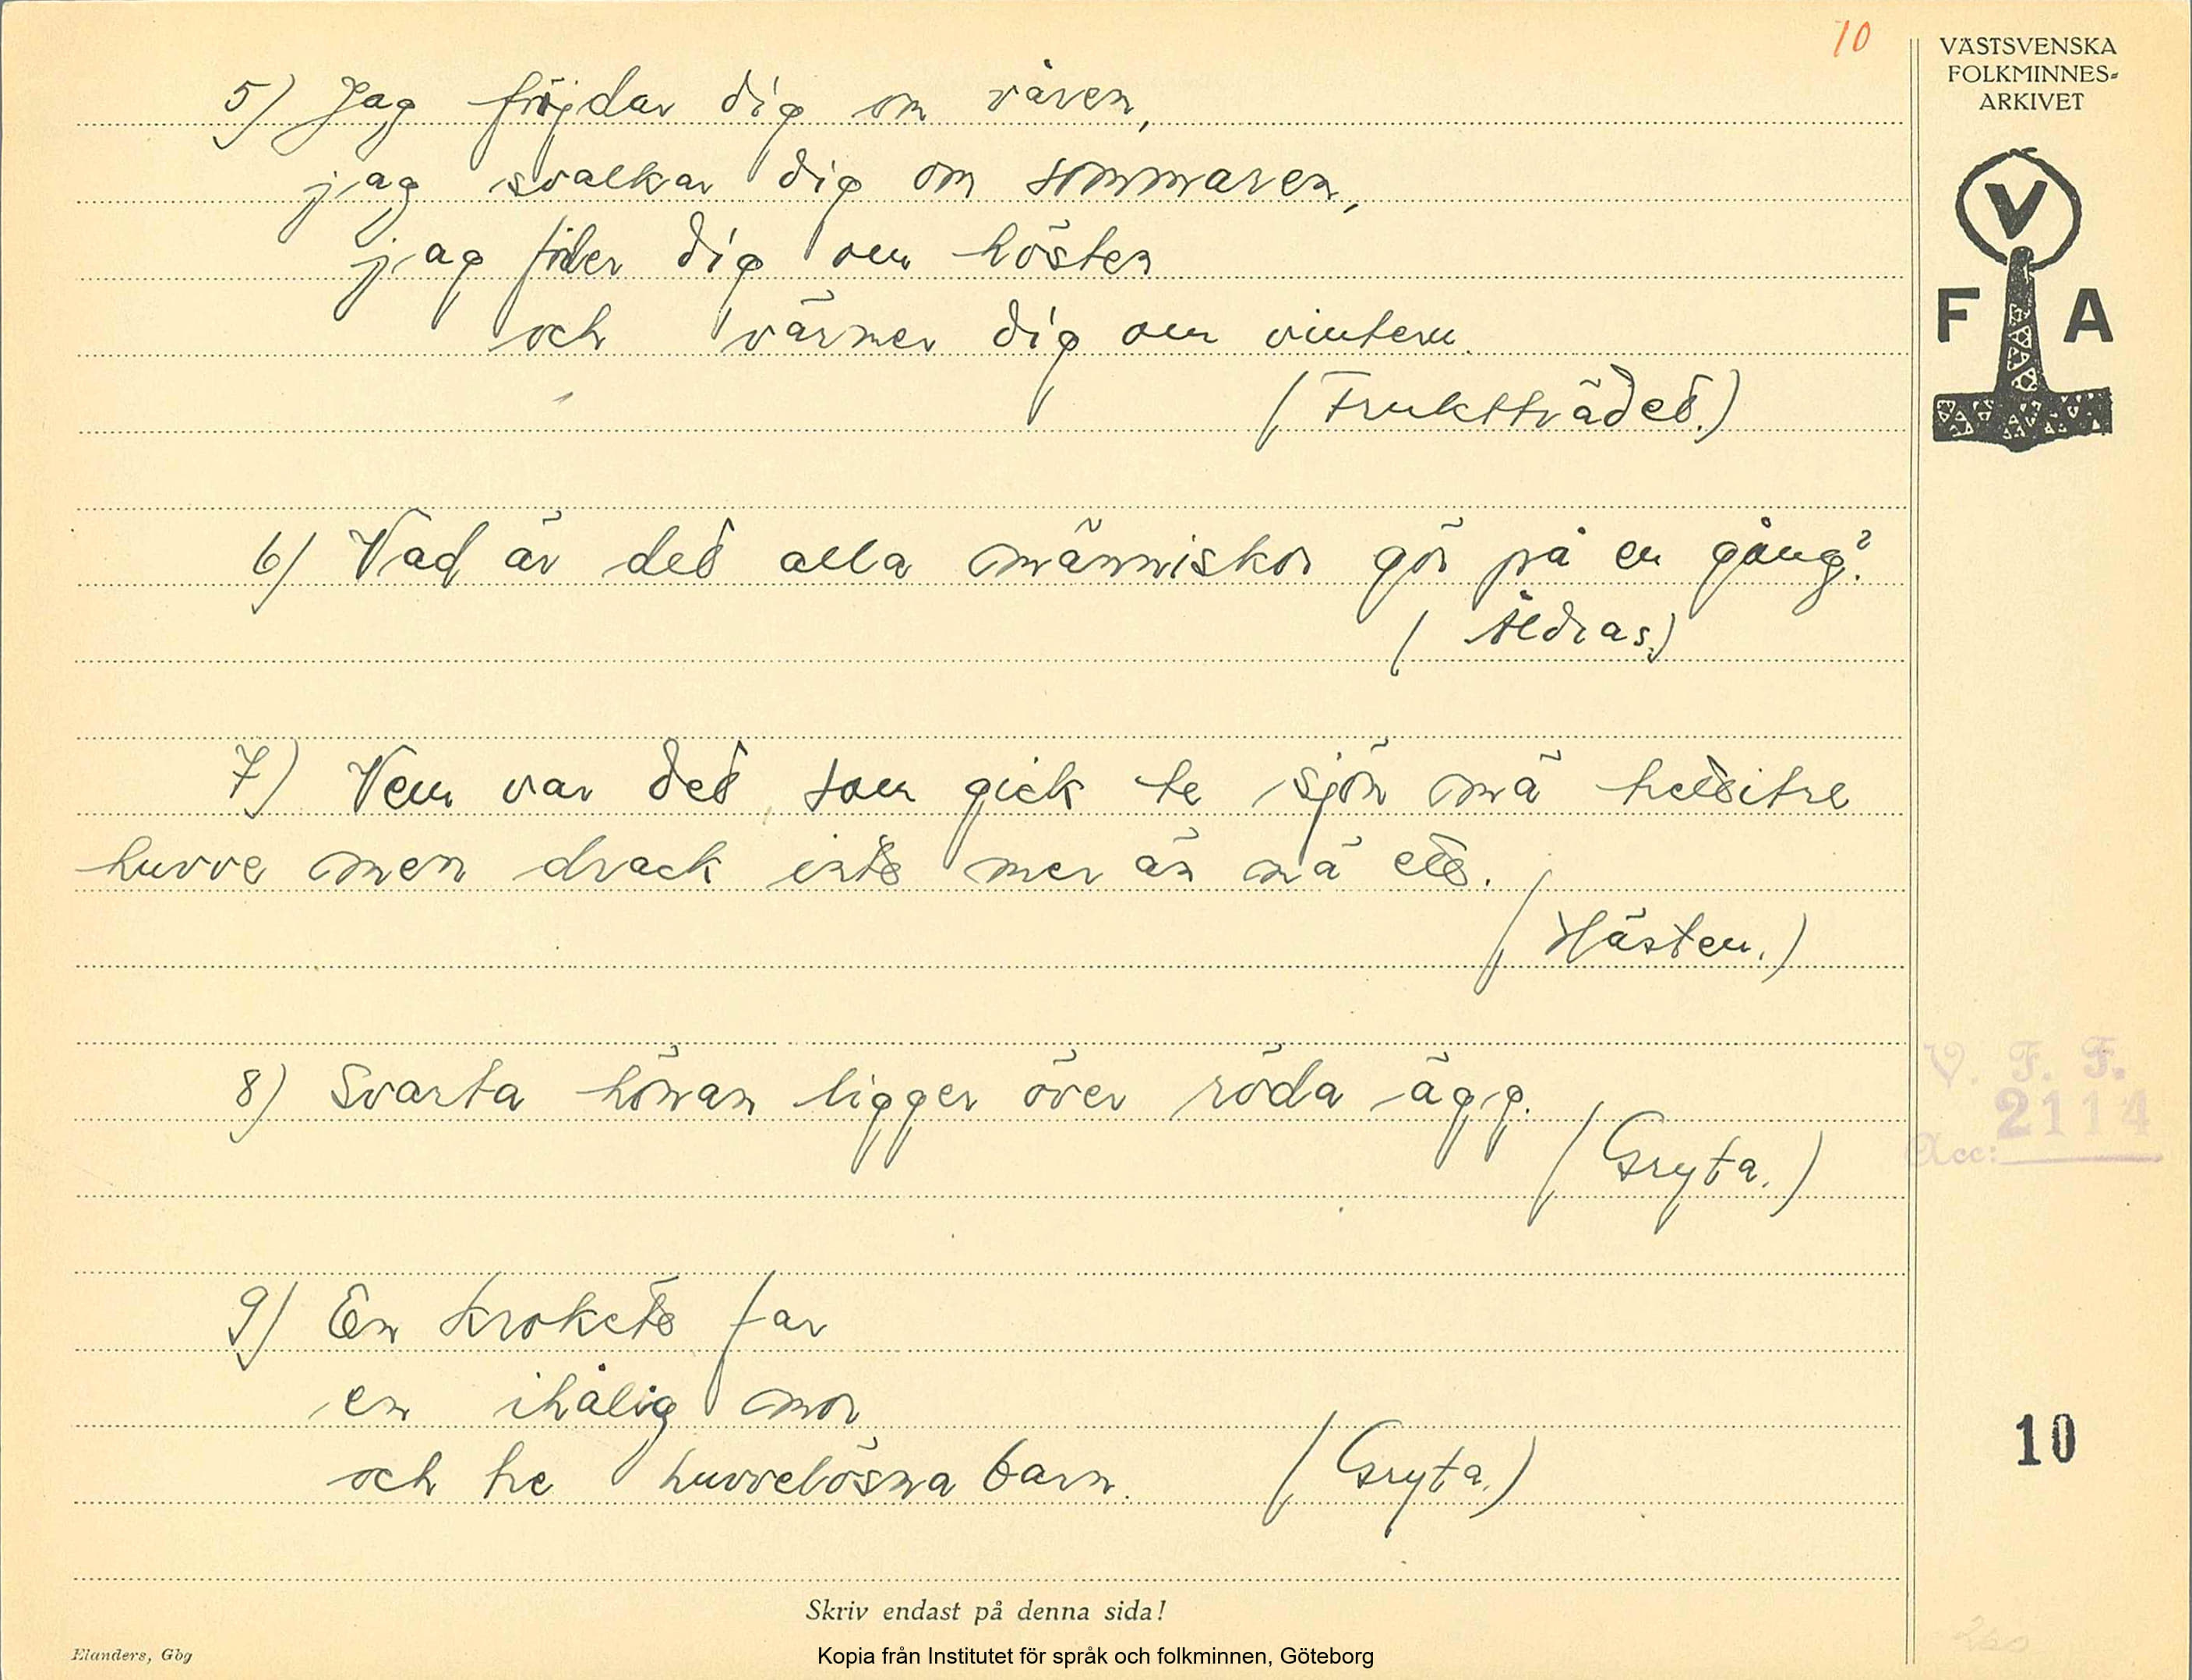 10
VÄSTSVENSKA
FOLKMINNES-
ARKIVET
V
F A
5) Jag fröjdar dig om våren,
jag svalkar dig om sommaren,
jag föder dig om hösten
och värmer dig om vintern.
(Fruktträdet.)
6) Vad är det alla människor gör på en gång?
(Åldras.)
7) Vem var det som gick te sjön mä
huvve men drack inte mer än mä ett.
(Hästen.)
8) Svarta hönan ligger över röda ägg.
(Gryta.)
V. F. F.
2114
Acc:
9) En krokete far
en ihålig mor
och tre huvvelösna barn. (Gryta.)
10
Skriv endast på denna sida!
Elanders, Gbg
Kopia från Institutet för språk och folkminnen, Göteborg